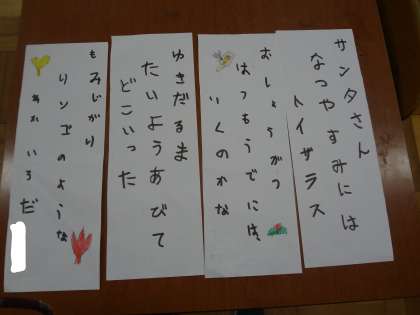 サンタさん
なつやすみには
トイザラス
おしょうがつ
はつもうでには
いくのかな
ゆきだるま
たいようあびて
どこいった
もみじがり
リンゴのような
あかいろだ